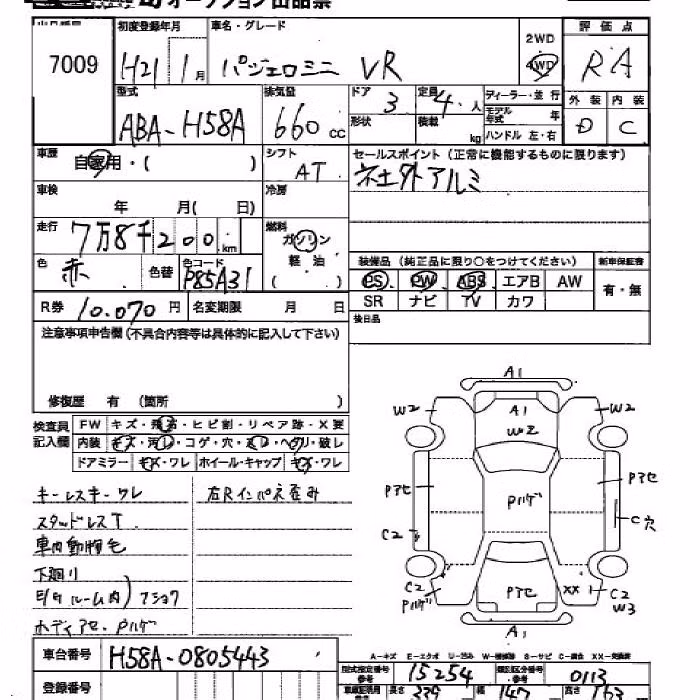 オークション出品票
初度登録年月 車名・グレード 2WD 評価点
7009 H21 1月 パジェロミニ VR 4WD RA
型式 排気量 ドア 定員 ディーラー・並行 外装 内装
ABA-H58A 660cc 3 4人 モデル年式 年 D C
形状 積載 kg ハンドル 左・右
車歴 自家用・( ) シフト AT セールスポイント(正常に機能するものに限ります)
社外アルミ
車検 年 月( 日) 冷房
走行 7万8千200km 燃料 ガソリン
軽油
( )
色 赤 色替 色コード P85A31
装備品(純正品に限り○をつけてください) 新車保証書
PS PW ABS エアB AW 有・無
SR ナビ TV カワ
R券 10.070円 名変期限 月 日 後日品
注意事項申告欄(不具合内容等は具体的に記入して下さい)
修復歴 有 (箇所 )
検査員記入欄 FW キズ・飛石・ヒビ割・リペア跡・X要
内装 キズ・汚レ・コゲ・穴・ヌレ・ヘタリ・破レ
ドアミラー キズ・ワレ ホイール・キャップ キズ・ワレ
キーレスキーワレ 右Rインパネ歪み
スタッドレスT
車内動物毛
下廻り
E/gルーム内)フショク
ボディアセ、Pハゲ
A1
W2 A1 W2
WZ
Pアセ Pハゲ Pアセ
C2 C穴
C2 Pアセ XX C2
Pハゲ W3
A1
A-キズ E-エクボ U-凹み W-補修跡 S-サビ C-腐食 XX-交換済
車台番号 H58A-0805443
型式指定番号 参考 15254 類別区分番号 参考 0113
登録番号 長さ 339 幅 147 高さ 163